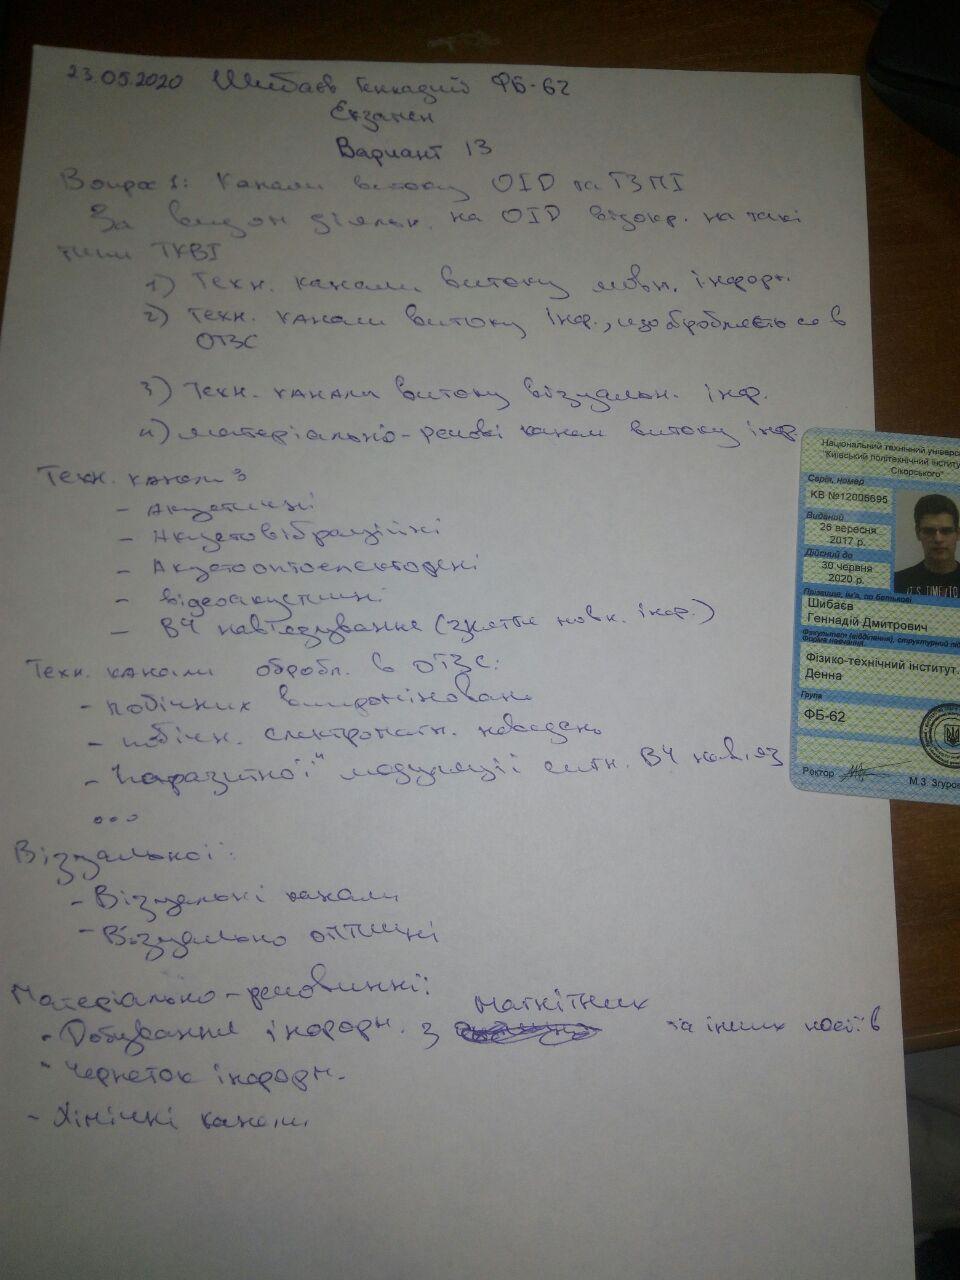 23.05.2020 Шибаєв Геннадій ФБ-62
Екзамен
Вариант 13
Вопрос 1: Канали витоку ОІD та ТЗПІ
За видом діяльн. на ОІD відокр. на такі
типи ТКВІ
1) Техн. канали витоку мовн. інформ.
2) Техн. канали витоку інф., що обробляється в
ОТЗС
3) Техн. канали витоку візуальн. інф.
4) матеріально-речові канали витоку інф.
Техн. канали
- Акустичні
- Акустовібраційні
- Акустооптоелектронні
- відеоакустичні
- ВЧ нав'язування (зняття мовн. інф.)
Техн. канали обробл. в ОТЗС:
- побічних випромінювань
- побічн. електромагн. наведень
- "паразитної" модуляції сигн. ВЧ нав'яз
...
Візуальної:
- Візуальні канали
- Візуально оптичні
Матеріально-речовинні:
- Добування інформ. з магнітних та інших носіїв
- Чернеток інформ.
- Хімічні канали
Національний технічний універс
"Київський політехнічний інститу
Сікорського"
Серія, номер
КВ №12006695
Виданий
26 вересня
2017 р.
Дійсний до
30 червня
2020 р.
Прізвище, ім'я, по батькові
Шибаєв
Геннадій Дмитрович
Факультет (відділення), структурний під
Форма навчання
Фізико-технічний інститут.
Денна
Група
ФБ-62
Ректор
М.З. Згуров